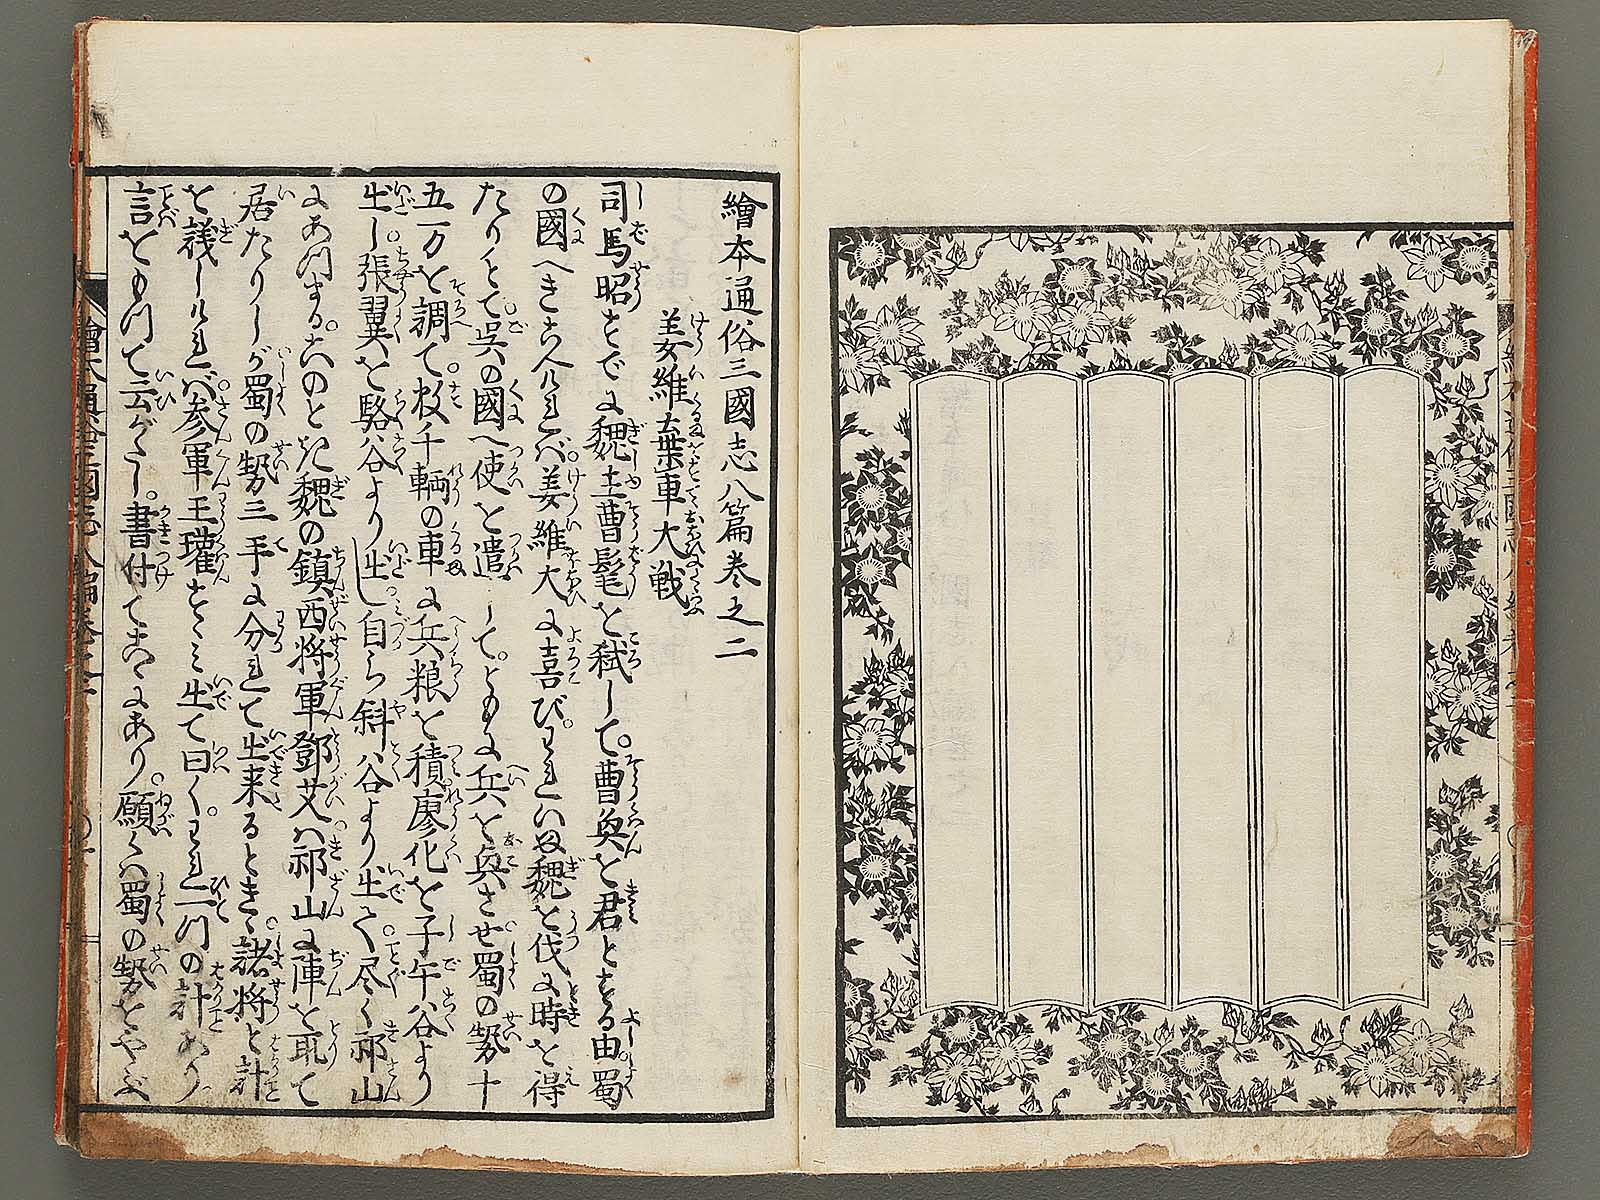 繪本通俗三國志八篇巻之二
姜維棄車大戦
司馬昭すでに魏主曹髦を弑して。曹奐を君とする由。蜀
の國へきこへければ。姜維大に喜び。われいま魏を伐に時を得
たりとて。呉の國へ使を遣して。ともに兵を興させ。蜀の勢十
五万を調て。数千輌の車に兵粮を積。廖化を子午谷より
出し。張翼を駱谷より出し。自ら斜谷より出て。尽く祁山
にあつまる。このとき魏の鎮西将軍鄧艾ハ祁山に陣を取て
居たりしが。蜀の勢三手に分れて出来るときゝ。諸将と計
を議しければ。参軍王瓘すゝミ出て曰く。われ一つの計あり。
言をもつて云がたし。書付てこゝにあり。願くハ蜀の勢をやぶ